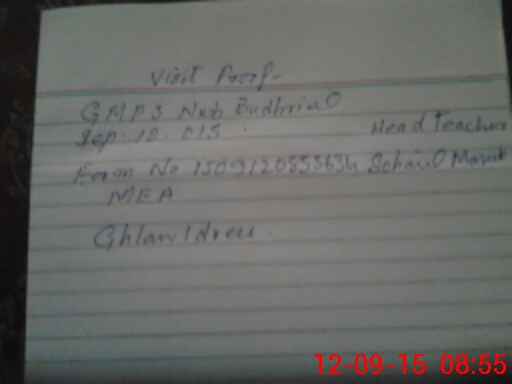 Visit Proof
GMPS Nxb Budhrial
Sep-12-015
Head Teacher
Form No 150912085363h Sohail Masih
MEA
Ghlam Idrees
12-09-15 08:55